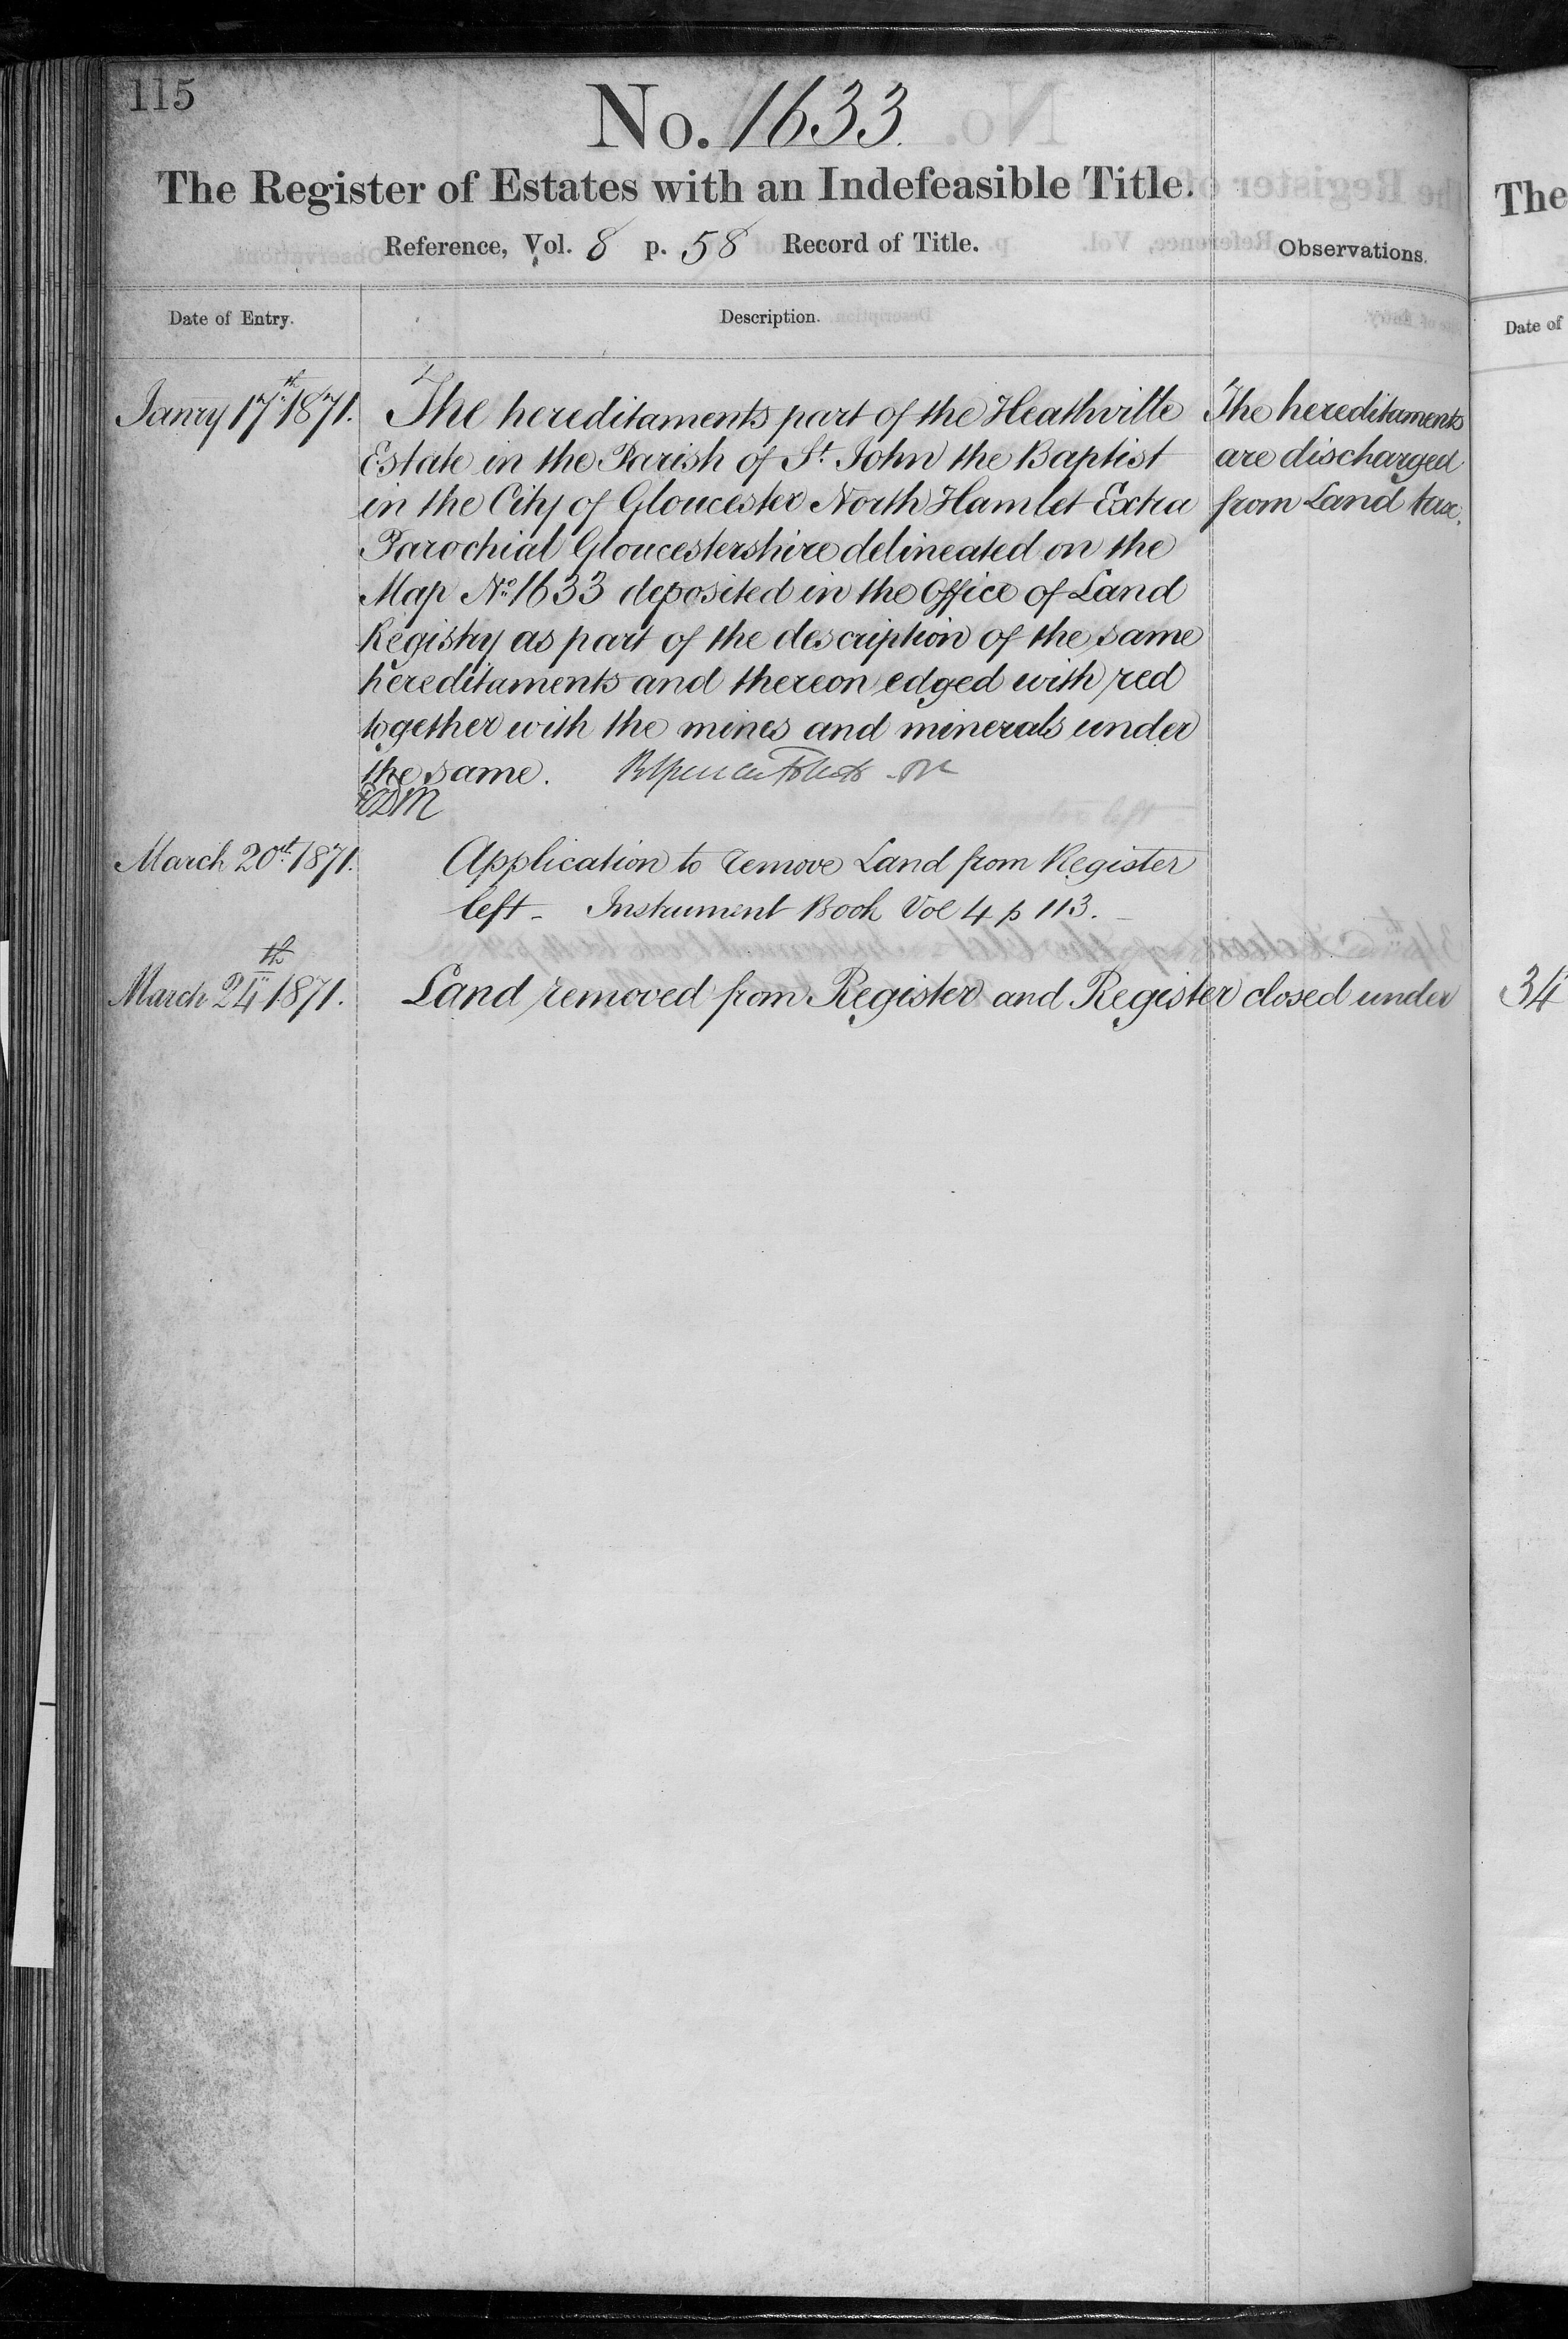 115
No. 1633.
The Register of Estates with an Indefeasible Title.
Reference, Vol. 8 p. 58 Record of Title.
Observations.
Date of Entry.
Description.
Janry 17th 1871.
The hereditaments part of the Heathville
Estate in the Parish of St. John the Baptist
in the City of Gloucester North Hamlet Extra
Parochial Gloucestershire delineated on the
Map No. 1633 deposited in the Office of Land
Registry as part of the description of the same
hereditaments and thereon edged with red
together with the mines and minerals under
the same.
The hereditaments
are discharged
from Land tax.
March 20th 1871.
Application to remove Land from Register
left - Instrument Book Vol 4 p 113.
March 24th 1871.
Land removed from Register and Register closed under
The
Date of
34